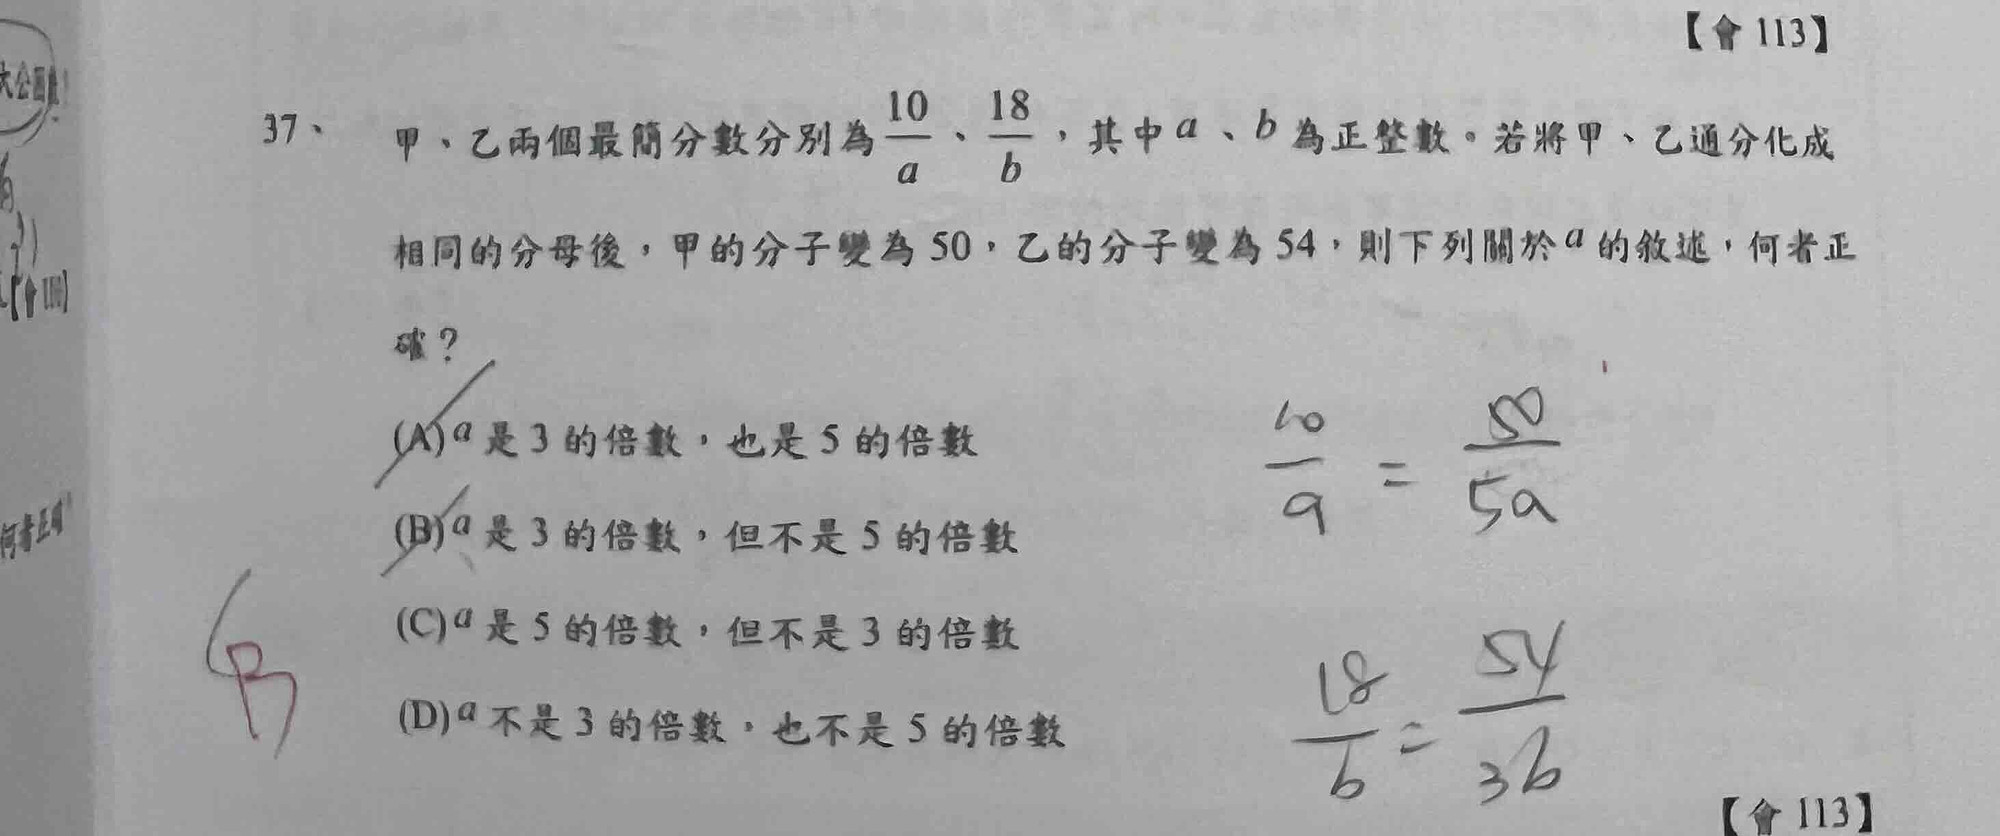 【會 113】
大公因數!
37、 甲、乙兩個最簡分數分別為 10/a、18/b,其中 a、b 為正整數。若將甲、乙通分化成
相同的分母後,甲的分子變為 50,乙的分子變為 54,則下列關於 a 的敘述,何者正
確?
(A) a 是 3 的倍數,也是 5 的倍數
(B) a 是 3 的倍數,但不是 5 的倍數
(C) a 是 5 的倍數,但不是 3 的倍數
(D) a 不是 3 的倍數,也不是 5 的倍數
10/a = 50/5a
18/b = 54/3b
B
何者正確
【會 113】